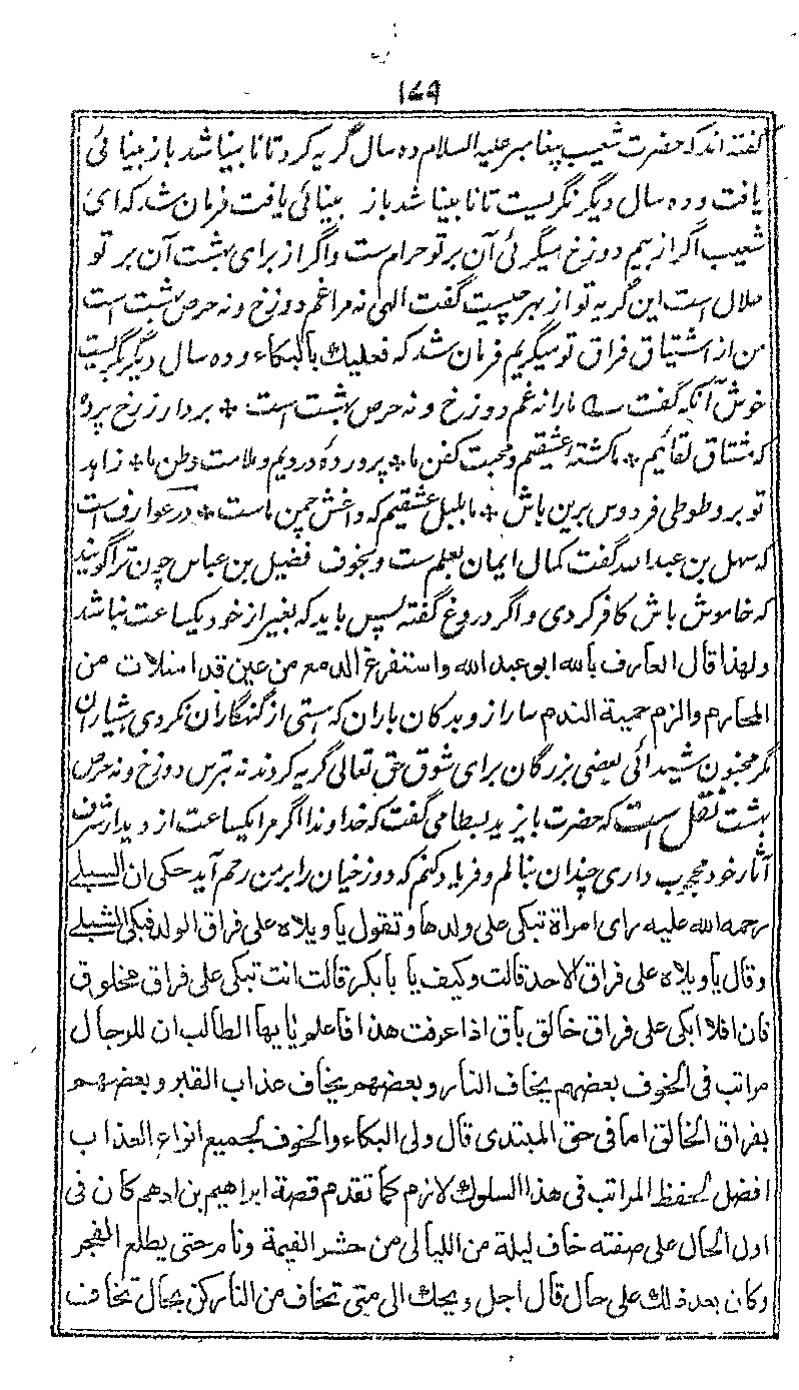 ۱۷۹
گفته اند که حضرت شعیب پیغامبر علیه السلام ده سال گریه کرد تا نابینا شد باز بینائی
یافت و ده سال دیگر نگریست تا نابینا شد باز بینائی یافت فرمان شد که ای
شعیب اگر از بیم دوزخ میگرئی آن بر تو حرام ست و اگر از برای بهشت آن بر تو
حلال است این گریه تو از بهر چیست گفت الهی نه مرا غم دوزخ و نه حرص بهشت است
من از اشتیاق فراق تو میگریم فرمان شد که فعلیك بالبکاء و ده سال دیگر نگریست
خوش آنکه گفت ما را نه غم دوزخ و نه حرص بهشت است * بردار ز رخ پرده
که مشتاق لقائیم * ما کشته عشقیم و محبت کفن ما * پرورده دردیم و ملامت وطن ما * زاهد
تو برو طوطی فردوس برین باش * ما بلبل عشقیم که داغش چمن ماست * در عوارف است
که سهل بن عبد الله گفت کمال ایمان بعلم ست و بخوف فضیل بن عباس چون ترا گویند
که خاموش باش کافر کردی و اگر دروغ گفته پس باید که بغیر از خود یکساعت نباشد
ولهذا قال العارف بالله ابو عبد الله واستفرغ الدمع من عین قد امتلات من
المحارم والزم حمیة الندم باران که سستی از گنهگاران نکردی هشیاران
مگر مجنون شیدائی بعضی بزرگان برای شوق حق تعالی گریه کردند نه بترس دوزخ و نه حرص
بهشت نقل است که حضرت بایزید بسطامی گفت که خداوندا اگر مرا یکساعت از دیدار شرف
آثار خود محجوب داری چندان بنالم و فریاد کنم که دوزخیان را بر من رحم آید حکی ان السبلے
رحمه الله علیه رای امراة تبکی علی ولدها و تقول یا ویلاه علی فراق الولد فبکی الشبلے
و قال یا ویلاه علی فراق الاحد قالت و کیف یا بابکر قالت انت تبکی علی فراق مخلوق
فان افلا ابکی علی فراق خالق باق اذا عرفت هذا فاعلم یایها الطالب ان للرجال
مراتب فی الخوف بعضهم یخاف النار و بعضهم یخاف عذاب القبر و بعضهم
بفراق الخالق اما فی حق المبتدی قال ولی البکاء والخوف لجمیع انواع العذاب
افضل لحفظ المراتب فی هذا السلوك لازم کما تقدم قصة ابراهیم بن ادهم کان فی
اول الحال علی صفته خاف لیلة من اللیالی من حشر القیمة و نام حتی یطلع الفجر
و کان بعد ذلك علی حال قال اجل ویحك الی متی تخاف من النار کن بحال تخاف